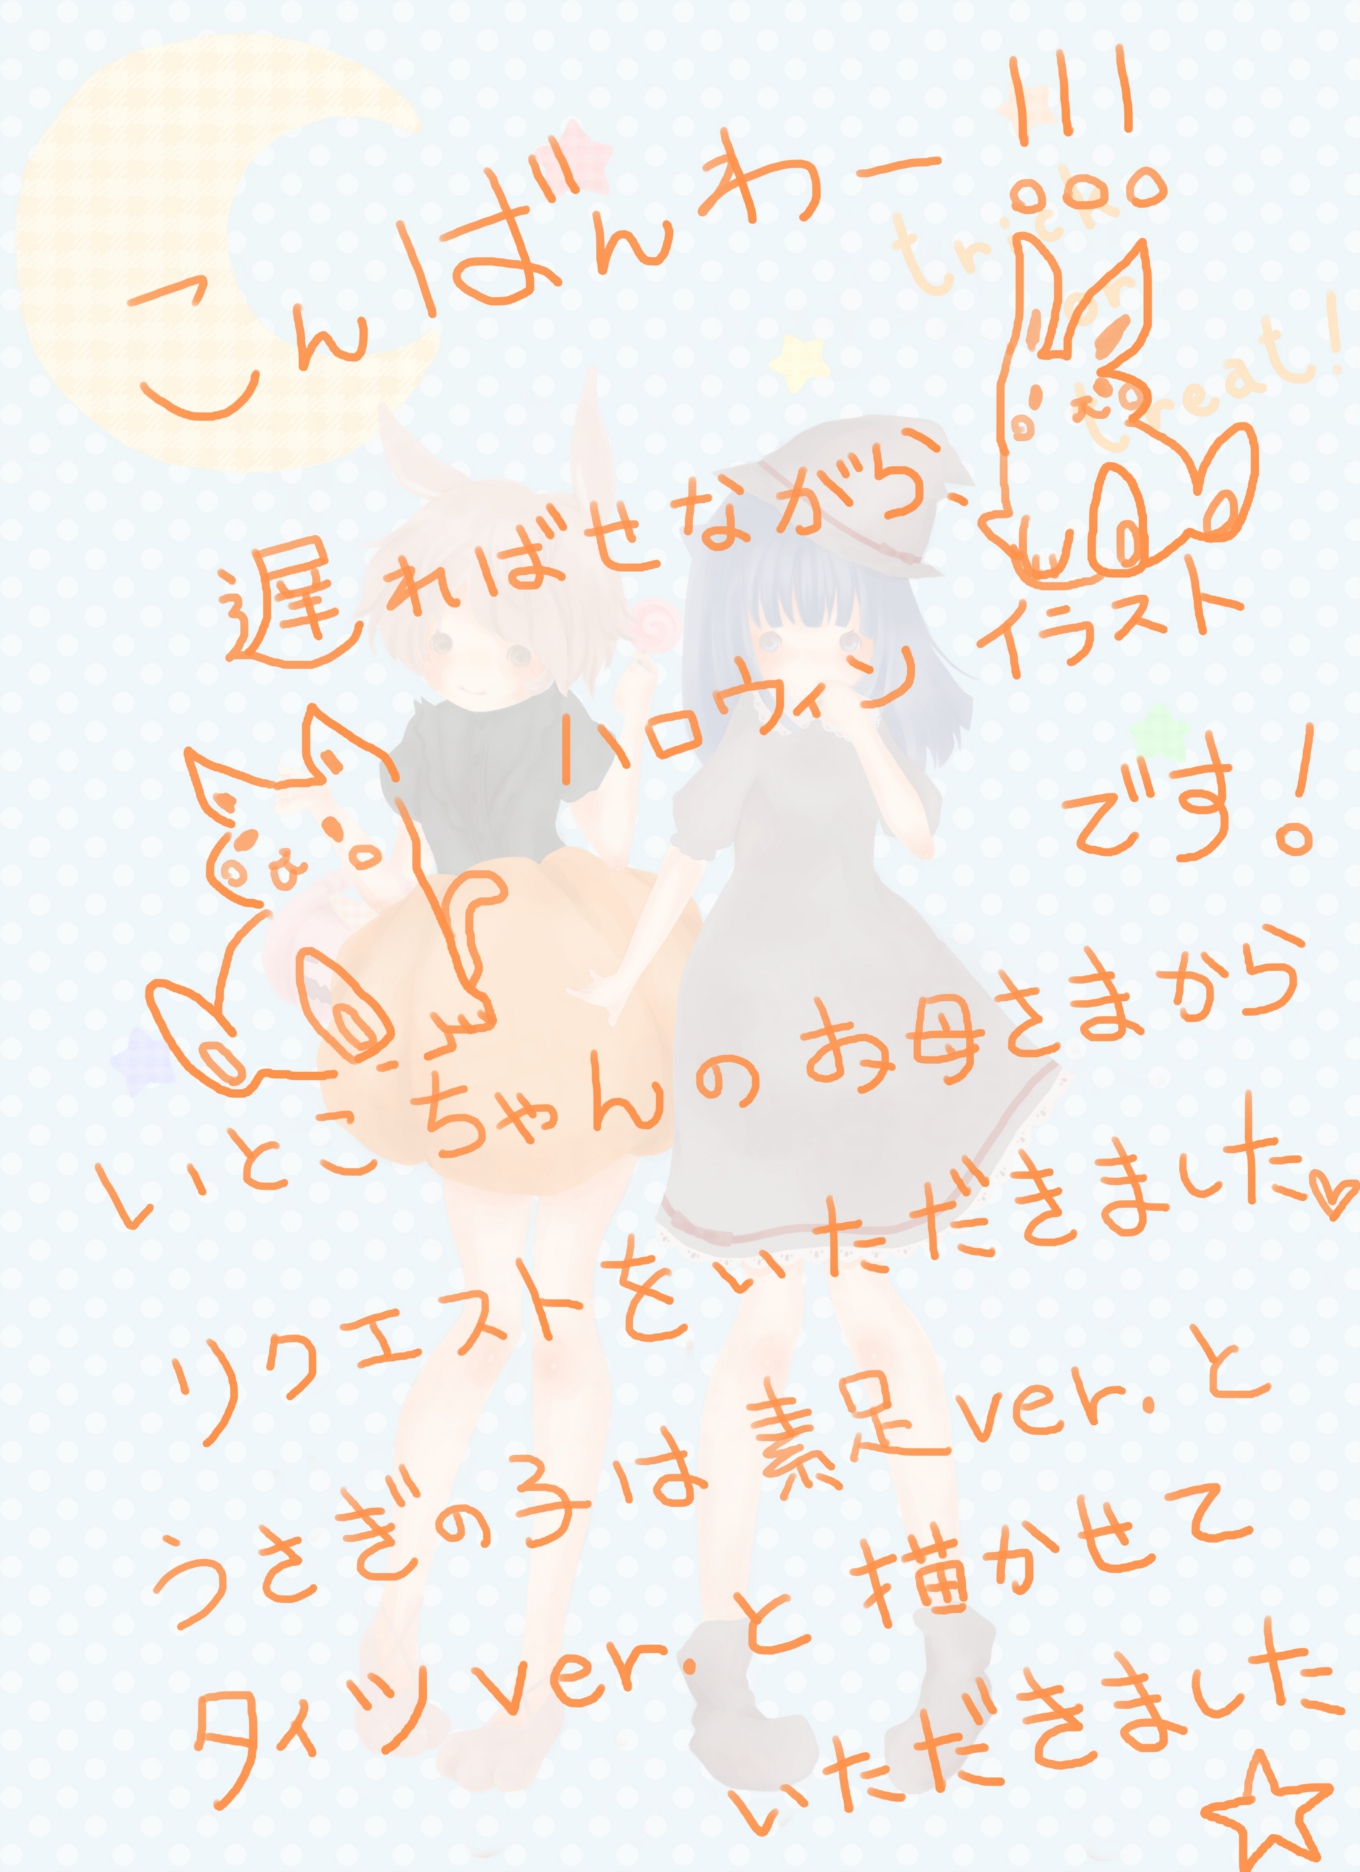 こんばんわー!!!
trick
or
treat!
遅ればせながら、
ハロウィンイラスト
です!
いとこちゃんのお母さまから
リクエストをいただきました♡
うさぎの子は素足ver.と
タイツver.と描かせて
いただきました☆